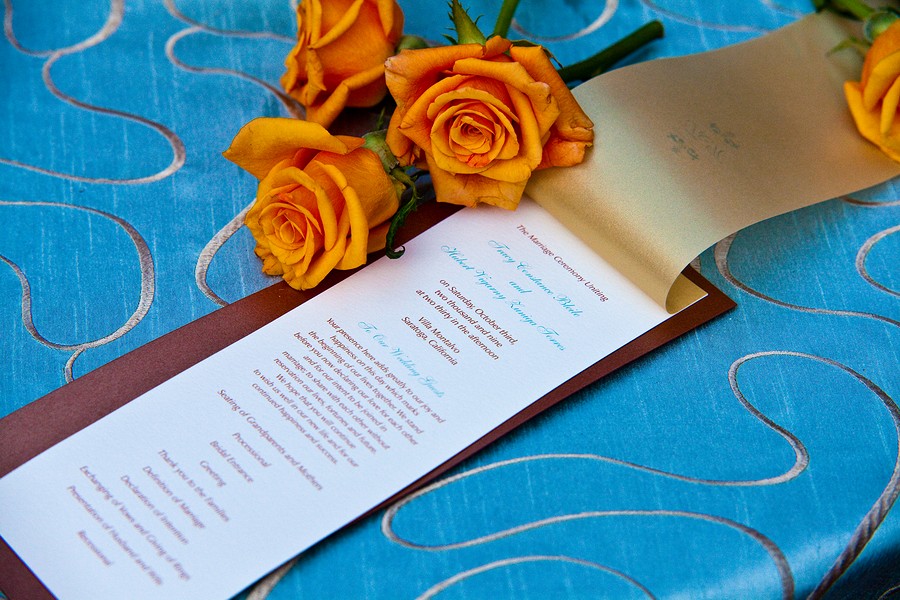 The Marriage Ceremony Uniting
Tracy Constance Bleile
on Saturday, October third,
two thousand and nine
at two thirty in the afternoon
Villa Montalvo
Saratoga, California
To Our Wedding Guests
Your presence here adds greatly to our joy and
happiness on this day which marks
the beginning of our lives together. We stand
before you now declaring our love for each other
and for our intent to be joined in
marriage; to share with each other without
reservation our lives, fortunes and future.
We hope that you will continue
to wish us well in our new life and for our
continued happiness and success.
Seating of Grandparents and Mothers
Processional
Bridal Entrance
Greeting
Thank you to the Families
Definition of Marriage
Declaration of Intention
Exchanging of Vows and Giving of Rings
Presentation of Husband and Wife
Recessional